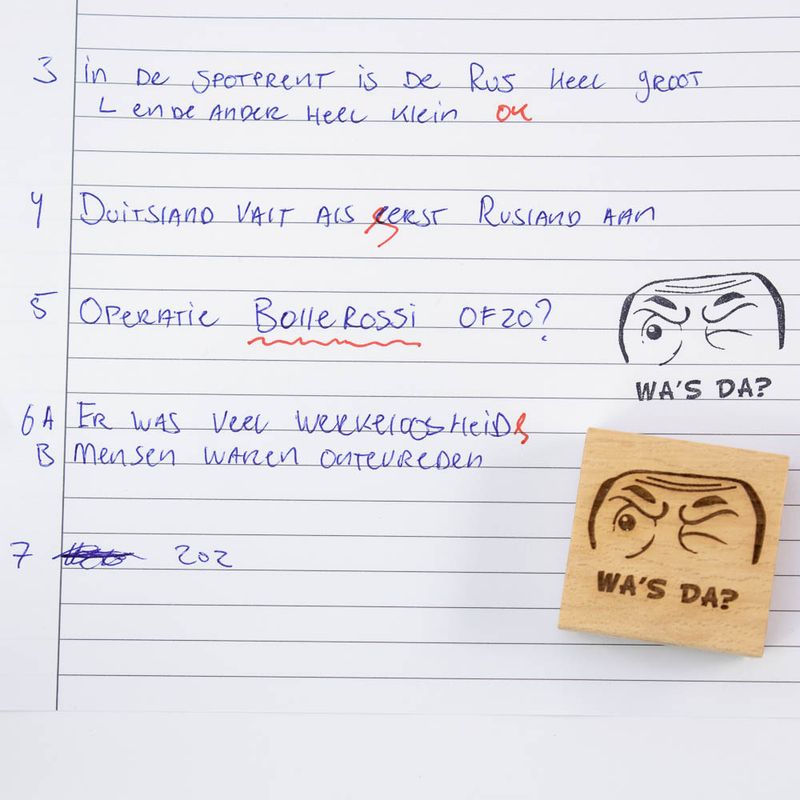 3 in de spotprent is de Rus heel groot
L en de ander heel klein OK
4 Duitsland valt als eerst Rusland aan
5 Operatie Bollerossi ofzo?
WA'S DA?
6A Er was veel werkeloosheid
B mensen waren ontevreden
7 202
WA'S DA?